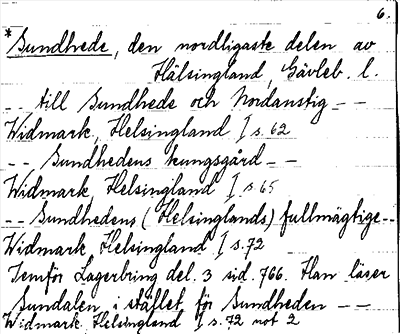 6.
*Sundhede, den nordligaste delen av
Hälsingland, Gävleb. l.
-- till Sundhede och Nordanstig --
Widmark, Helsingland I s. 62
-- Sundhedens kungsgård --
Widmark Helsingland I s. 65
-- Sundhedens (Helsinglands) fullmägtige --
Widmark Helsingland I s. 72
Jemför Lagerbring del. 3 sid. 766. Han läser
Sundalen i stället för Sundheden --
Widmark Helsingland I s. 72 not 2